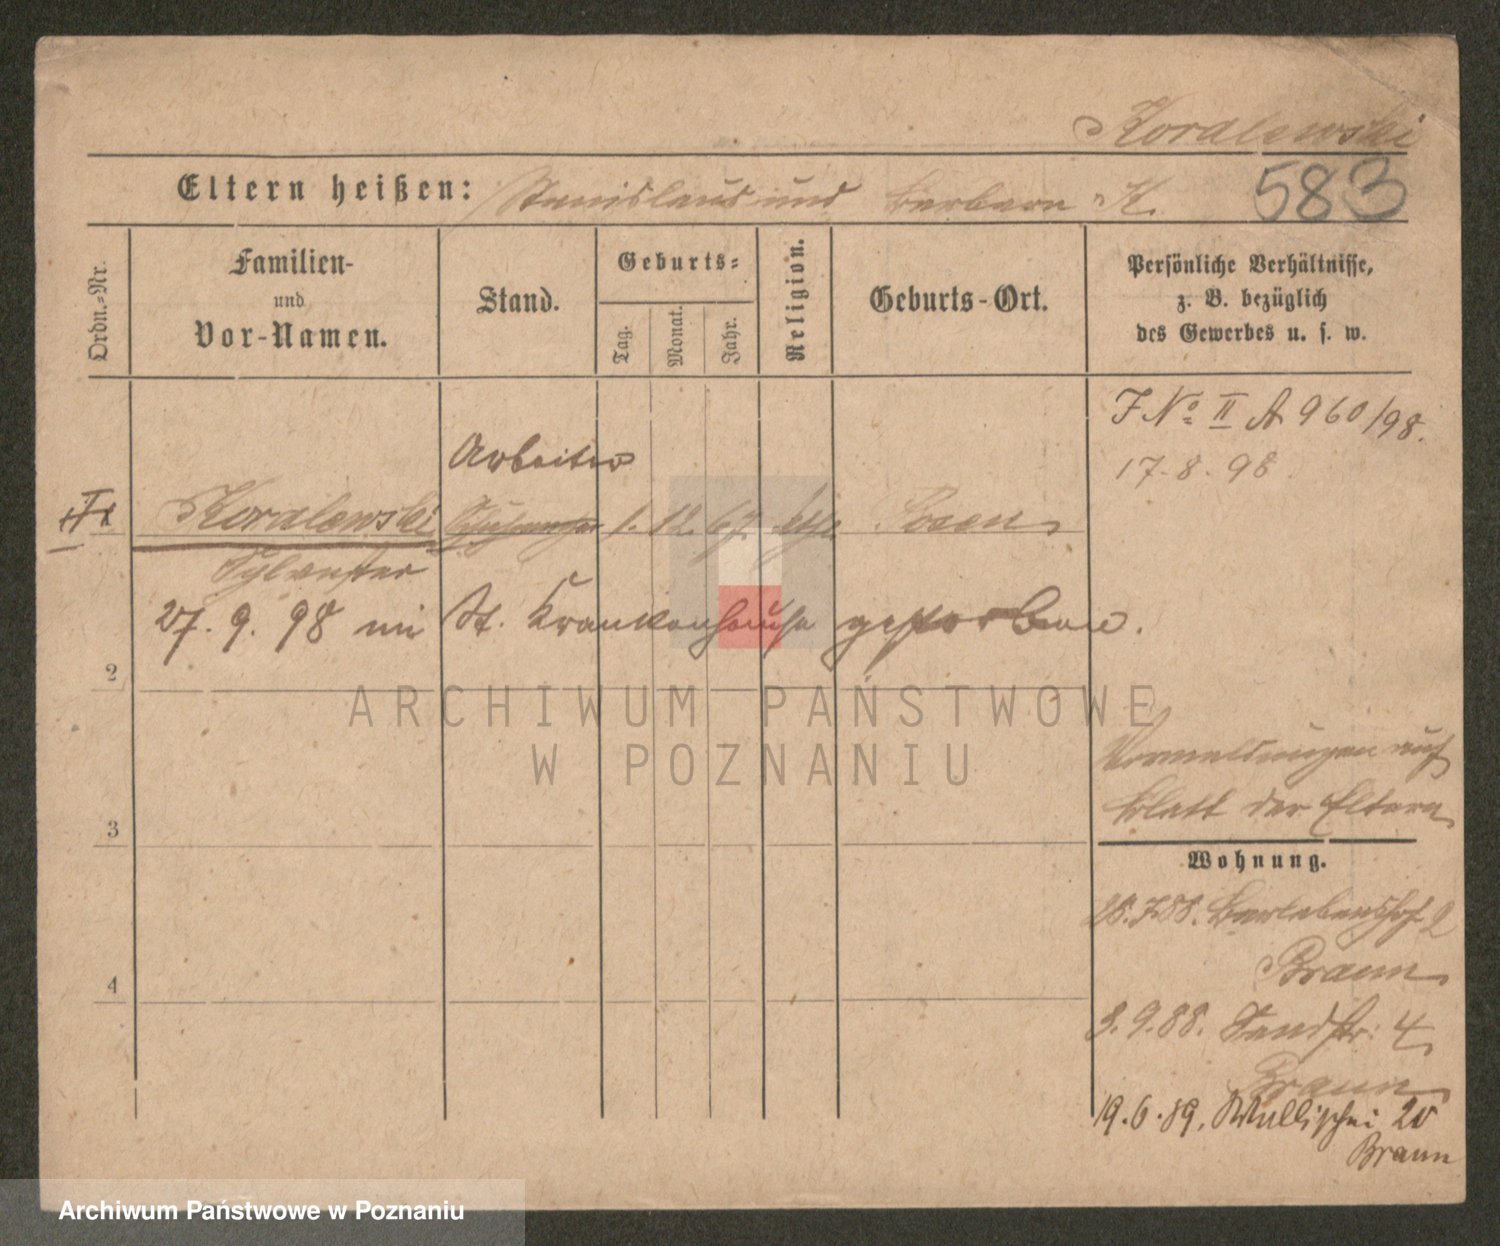 Koralewski
583
Eltern heißen: Stanislaus und Barbara K.
Ordn.-Nr.
Familien-
und
Vor-Namen.
Stand.
Geburts-
Tag.
Monat.
Jahr.
Religion.
Geburts-Ort.
Persönliche Verhältnisse,
z. B. bezüglich
des Gewerbes u. s. w.
J No II A 960/98.
17.8.98
Arbeiter
Koralewski 1. 12. 67. kath. Posen
Sylvester
27. 9. 98 im St. Krankenhause gestorben.
2
3
4
Vormeldungen auf
Blatt der Eltern
Wohnung.
Bartholdshof 2
Braun
3.9.88. Sandstr: 4
Braun
19.6.89. Wallischei 20
Braun
ARCHIWUM PAŃSTWOWE
W POZNANIU
Archiwum Państwowe w Poznaniu